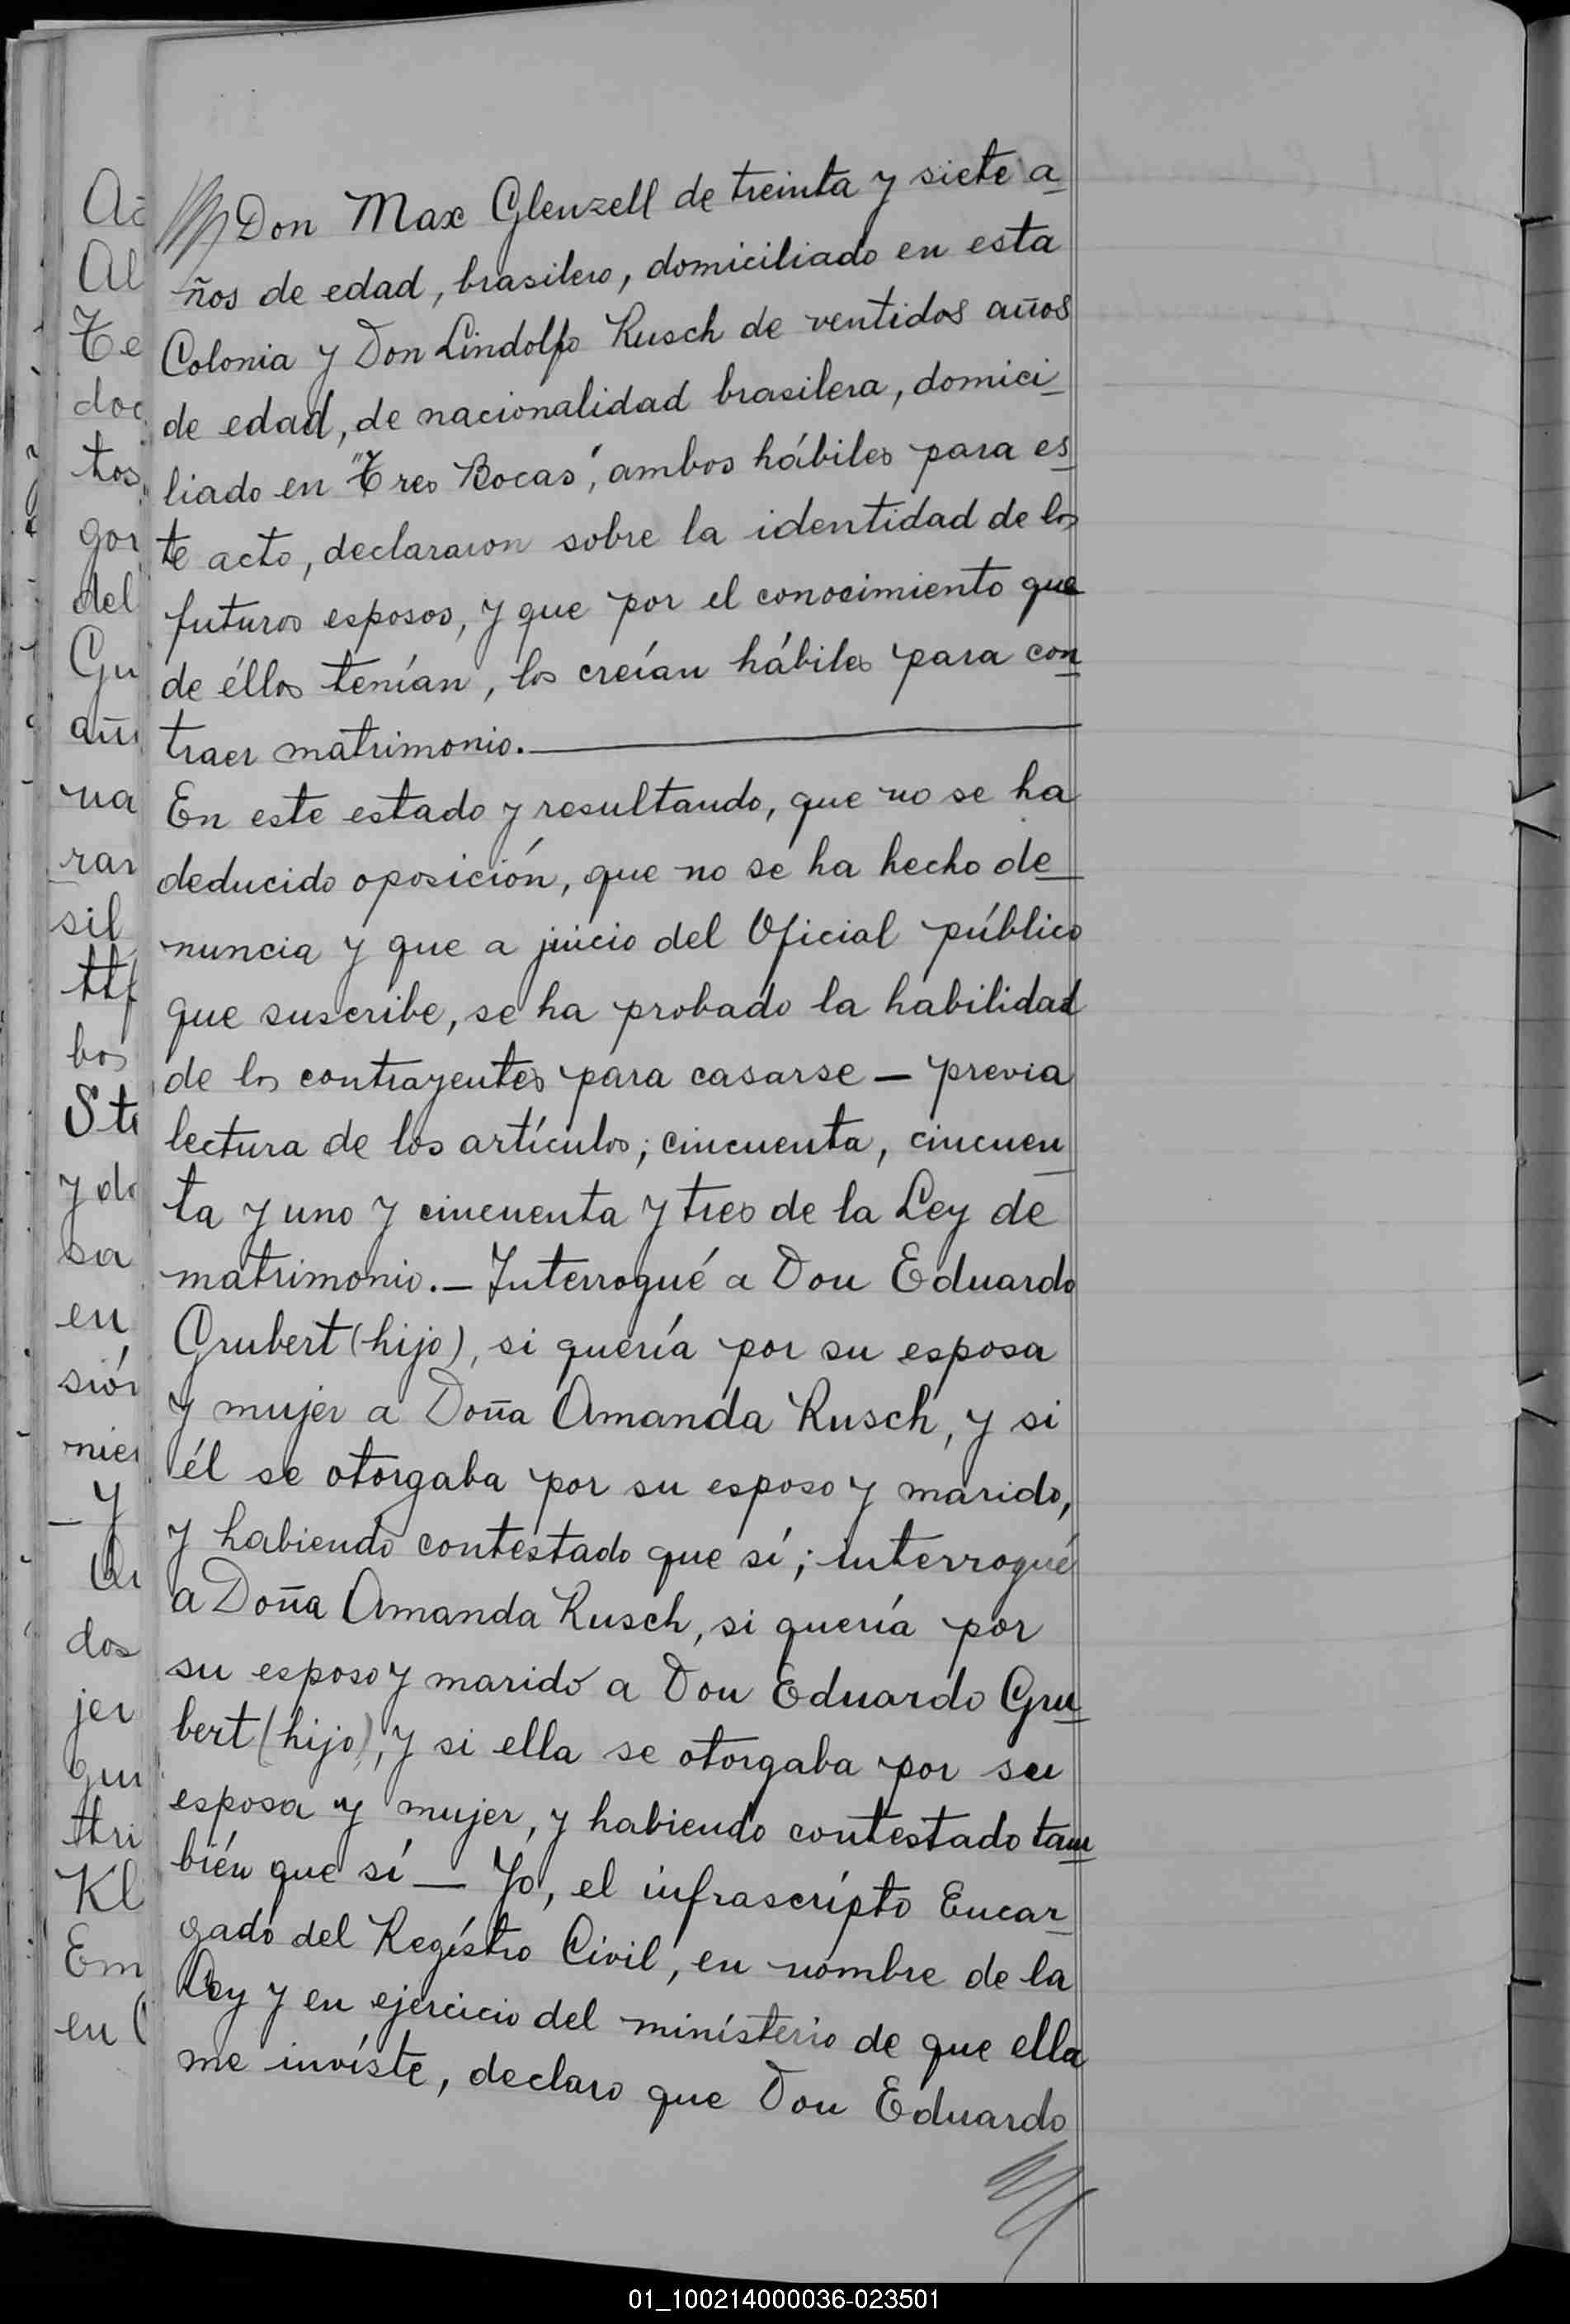 Don Max Glenzell de treinta y siete a-
ños de edad, brasilero, domiciliado en esta
Colonia y Don Lindolfo Rusch de ventidos años
de edad, de nacionalidad brasilera, domici-
liado en "Tres Bocas", ambos hábiles para es-
te acto, declararon sobre la identidad de los
futuros esposos, y que por el conocimiento que
de éllos tenían, los creían hábiles para con-
traer matrimonio.
En este estado y resultando, que no se ha
deducido oposición, que no se ha hecho de-
nuncia y que a juicio del Oficial público
que suscribe, se ha probado la habilidad
de los contrayentes para casarse — previa
lectura de los artículos; cincuenta, cincuen-
ta y uno y cincuenta y tres de la Ley de
matrimonio. — Interrogué a Don Eduardo
Grubert (hijo), si quería por su esposa
y mujer a Doña Amanda Rusch, y si
él se otorgaba por su esposo y marido,
y habiendo contestado que sí; interrogué
a Doña Amanda Rusch, si quería por
su esposo y marido a Don Eduardo Gru-
bert (hijo), y si ella se otorgaba por su
esposa y mujer, y habiendo contestado tam-
bién que sí — Yo, el infrascrípto Encar-
gado del Regístro Civil, en nombre de la
Ley y en ejercicio del minísterio de que ella
me invíste, declaro que Don Eduardo
Ac
Al
Te
doc
tos,
gor
del
Gu
añ
na
rar
sil
ttf
bos
Ste
y do
sa
en
siór
nier
y
dos
jer
gui
ttri
Kl
Em
en C
01_100214000036-023501